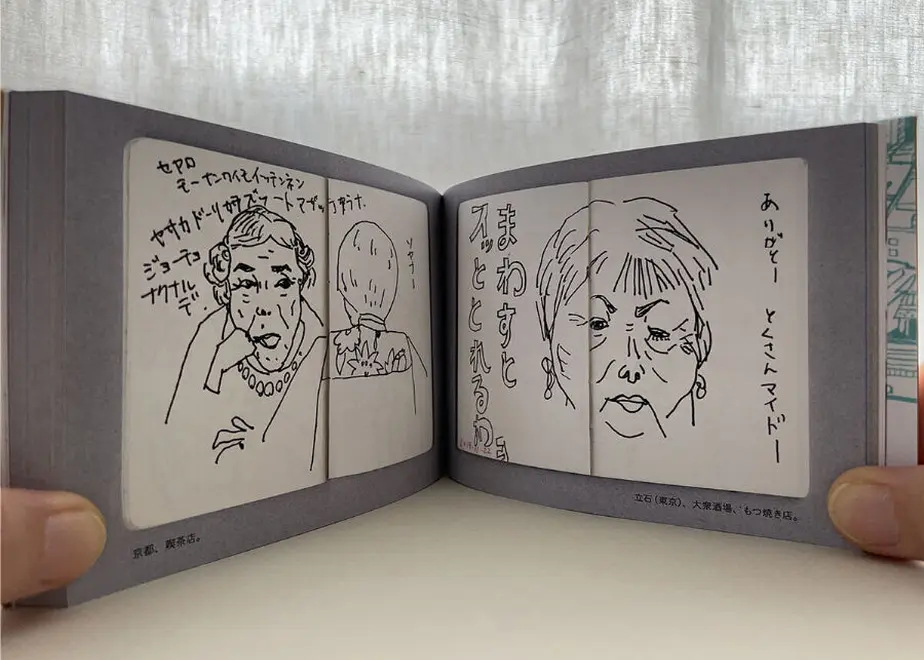 セヤロ
モーナンワイモイッテンネン
ヤサカドーリカラズゥートマガッ
ジョーチョ
ナクナル
デ.
ソヤナー
京都、喫茶店。
まわすと
スッととれるわ
ありがとー とくさんマイドー
立石(東京)、大衆酒場、もつ焼き店。